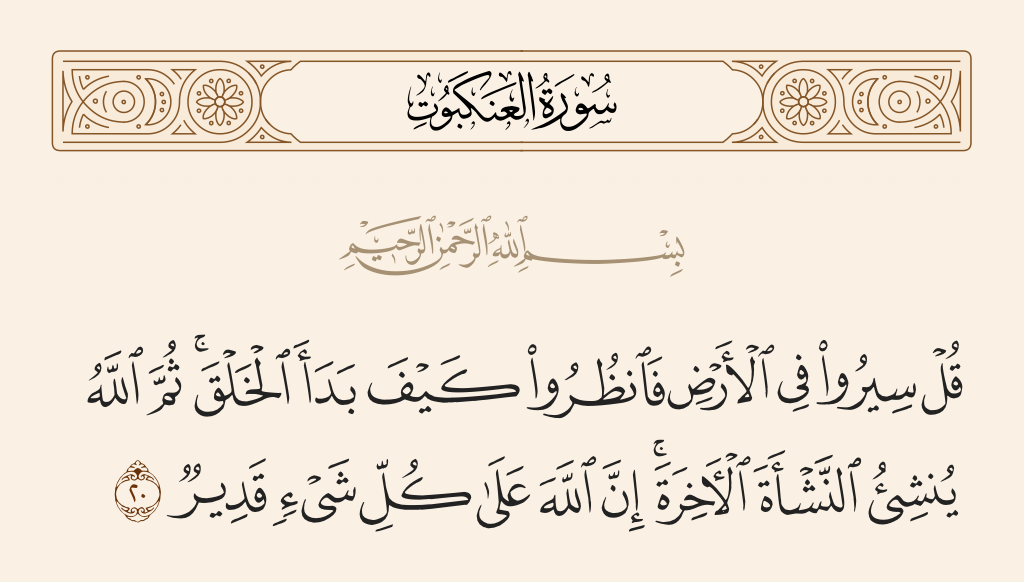 سُورَةُ الْعَنكَبُوتِ
بِسْمِ ٱللَّهِ ٱلرَّحْمَٰنِ ٱلرَّحِيمِ
قُلْ سِيرُوا۟ فِى ٱلْأَرْضِ فَٱنظُرُوا۟ كَيْفَ بَدَأَ ٱلْخَلْقَ ۚ ثُمَّ ٱللَّهُ
يُنشِئُ ٱلنَّشْأَةَ ٱلْـَٔاخِرَةَ ۚ إِنَّ ٱللَّهَ عَلَىٰ كُلِّ شَىْءٍ قَدِيرٌ ٢٠